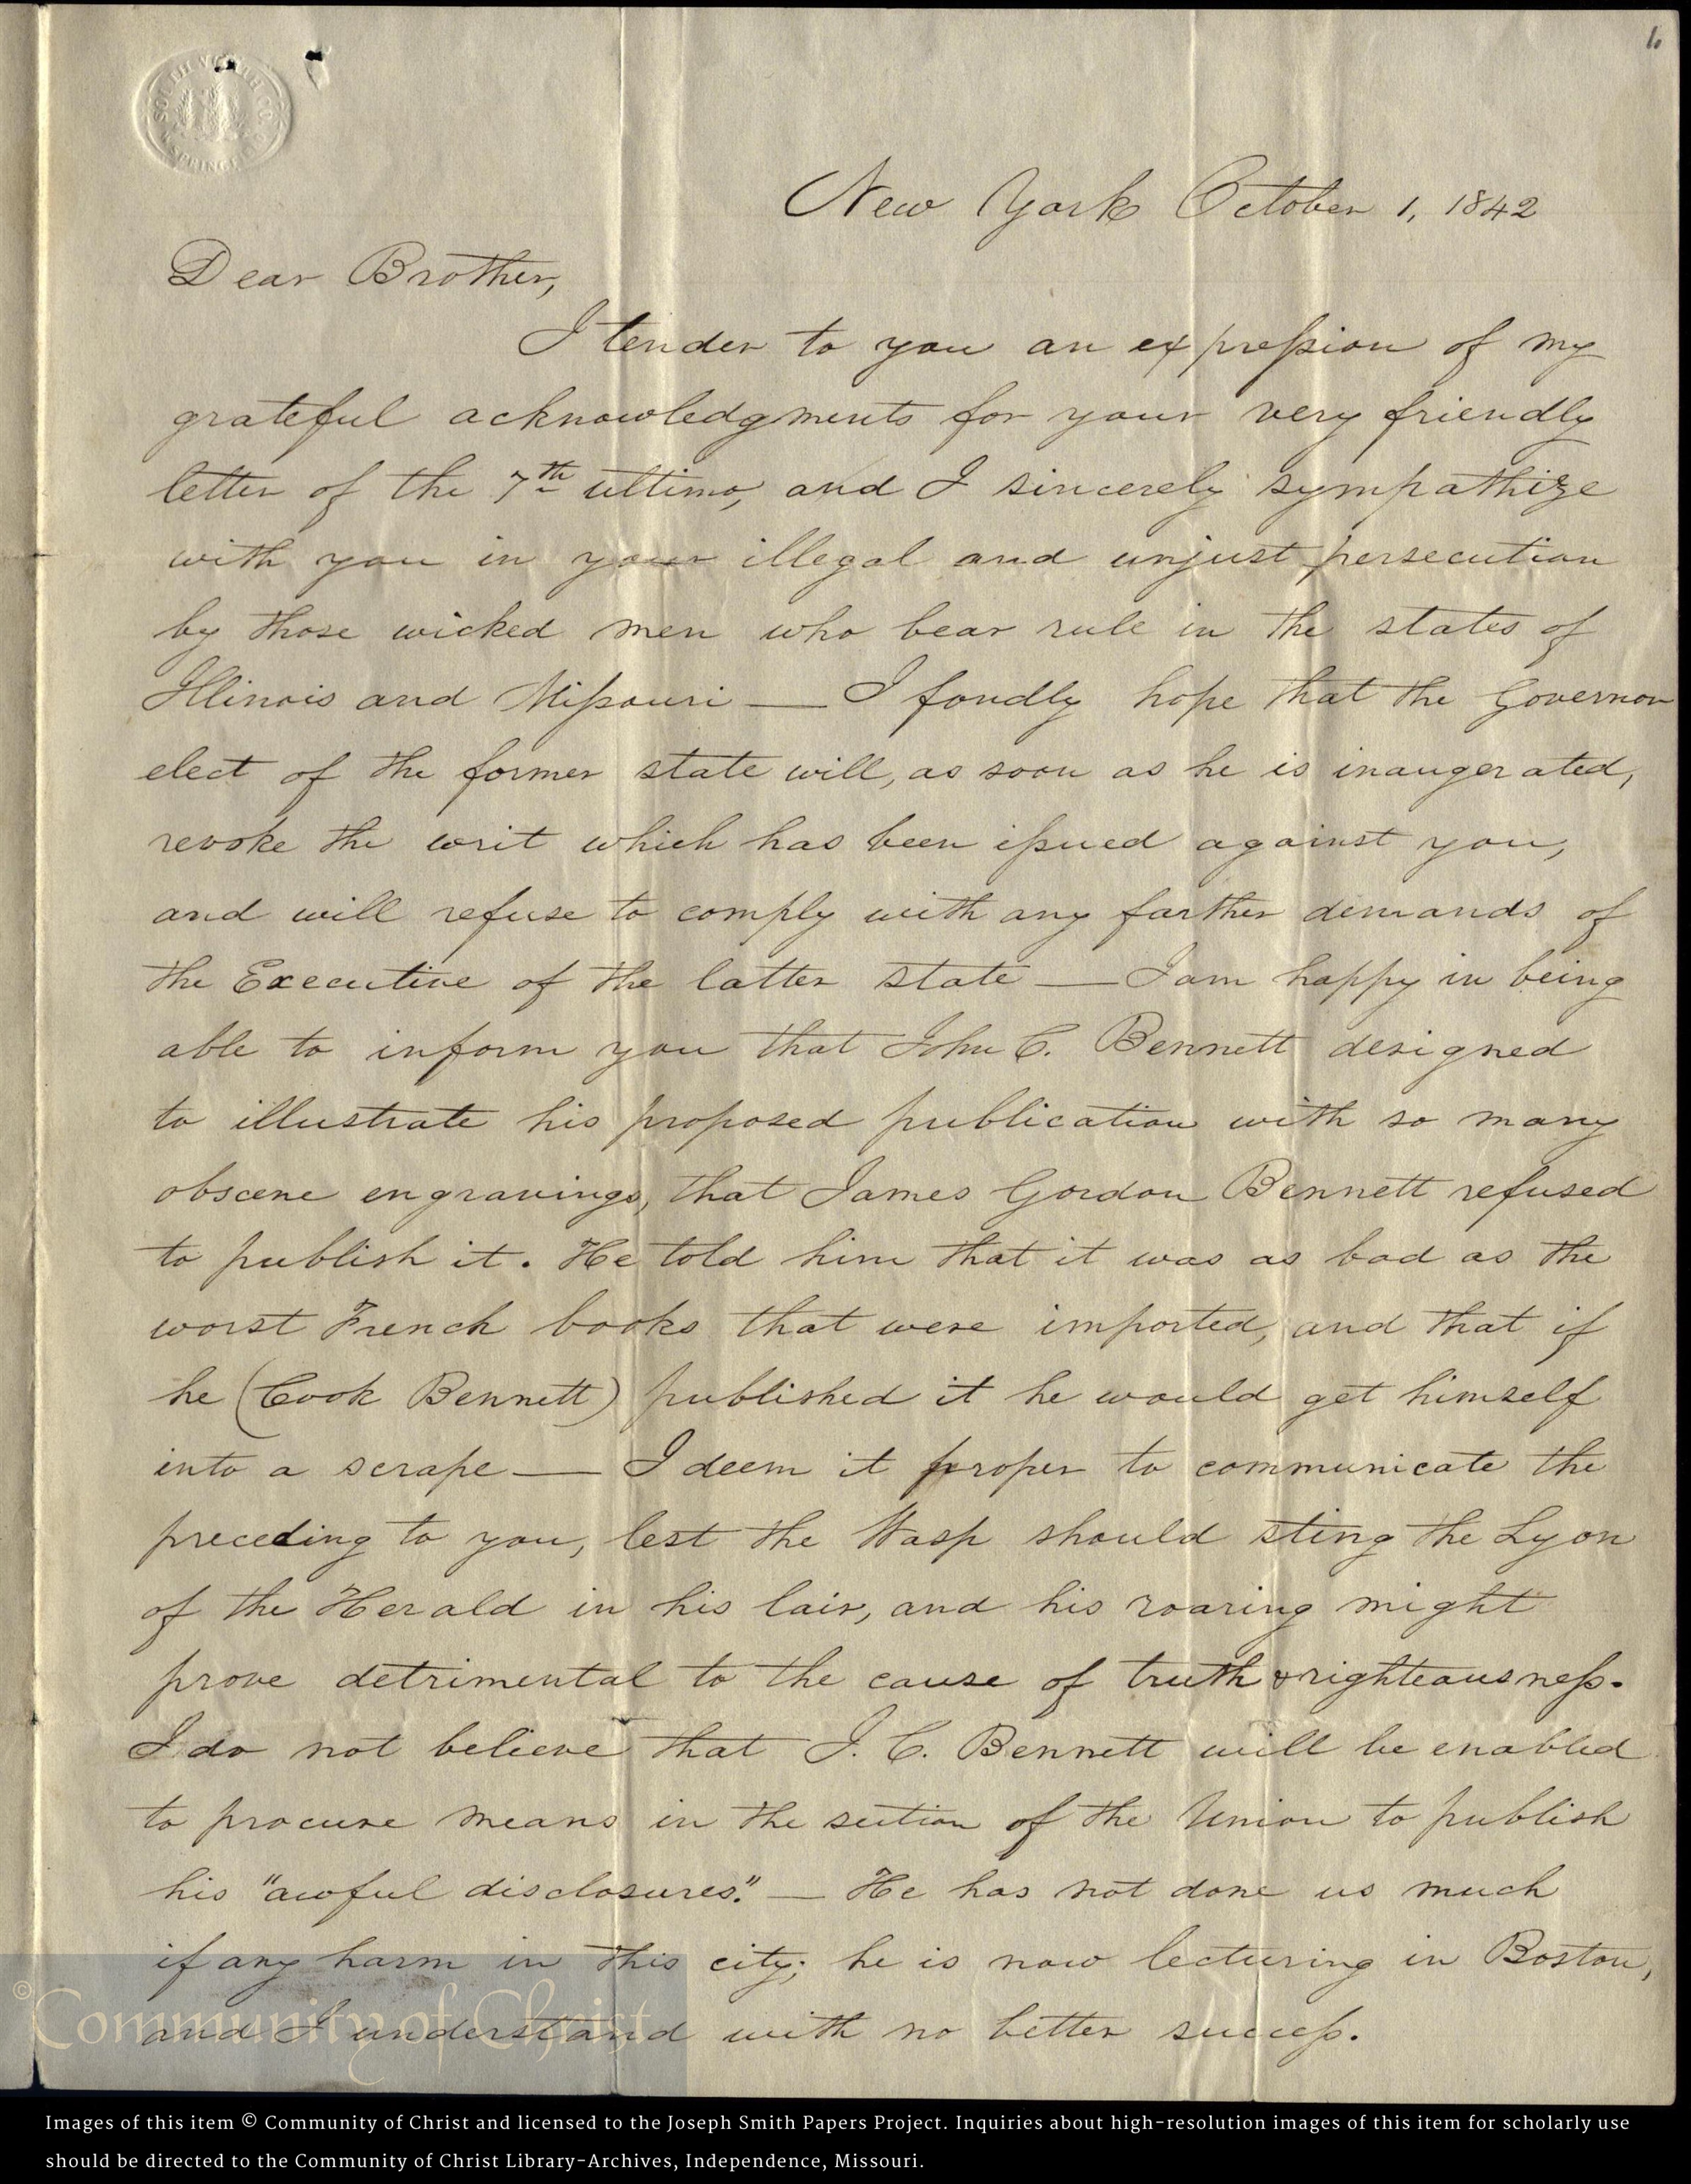 6
SOUTH WORTH CO
SPRINGF
New York October 1, 1842
Dear Brother,
I tender to you an expression of my
grateful acknowledgments for your very friendly
letter of the 7th ultimo, and I sincerely sympathize
with you in your illegal and unjust persecution
by those wicked men who bear rule in the states of
Illinois and Missouri — I fondly hope that the Governor
elect of the former state will, as soon as he is inaugerated,
revoke the writ which has been issued against you,
and will refuse to comply with any farther demands of
the Executive of the latter state — I am happy in being
able to inform you that John C. Bennett designed
to illustrate his proposed publication with so many
obscene engravings, that James Gordon Bennett refused
to publish it. He told him that it was as bad as the
worst French books that were imported, and that if
he (Cook Bennett) published it he would get himself
into a scrape — I deem it proper to communicate the
preceding to you, lest the Wasp should sting the Lyon
of the Herald in his lair, and his roaring might
prove detrimental to the cause of truth & righteousness.
I do not believe that J. C. Bennett will be enabled
to procure means in the section of the Union to publish
his "awful disclosures." — He has not done us much
if any harm in this city; he is now lecturing in Boston,
and I understand with no better success.
© Community of Christ
Images of this item © Community of Christ and licensed to the Joseph Smith Papers Project. Inquiries about high-resolution images of this item for scholarly use
should be directed to the Community of Christ Library-Archives, Independence, Missouri.